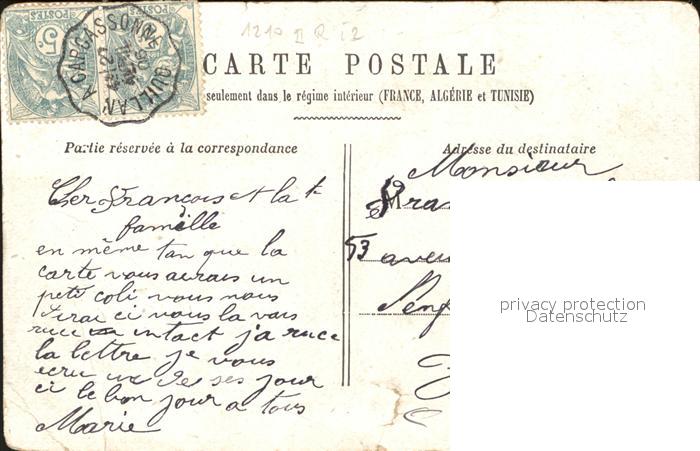 1210 II R 12
POSTES 5 POSTES
QUILLAN A CARCASSONNE
CARTE POSTALE
seulement dans le régime intérieur (FRANCE, ALGÉRIE et TUNISIE)
Partie réservée à la correspondance
Cher François et la
famille
en même tan que la
carte vous aurais un
peti coli, vous nous
dirai ci vous la vais
ruce intact j'a ruce
la lettre je vous
ecru un de ses jour
ci le bon jour a tous
Marie
Adresse du destinataire
Monsieur
53 aven
privacy protection
Datenschutz